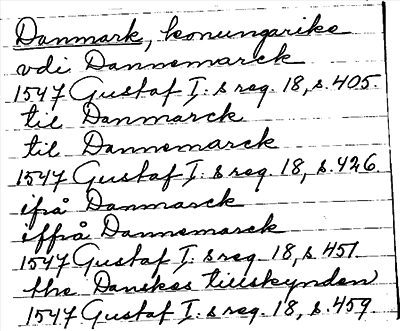 Danmark, konungarike
vdi Dannemarck
1547 Gustaf I:s reg. 18, s. 405.
til Danmarck
til Dannemarck
1547 Gustaf I:s reg. 18, s. 426.
ifrå Danmarck
iffrå Dannemarck
1547 Gustaf I:s reg. 18, s. 451.
the Danskes tilskynden
1547 Gustaf I:s reg. 18, s. 459.